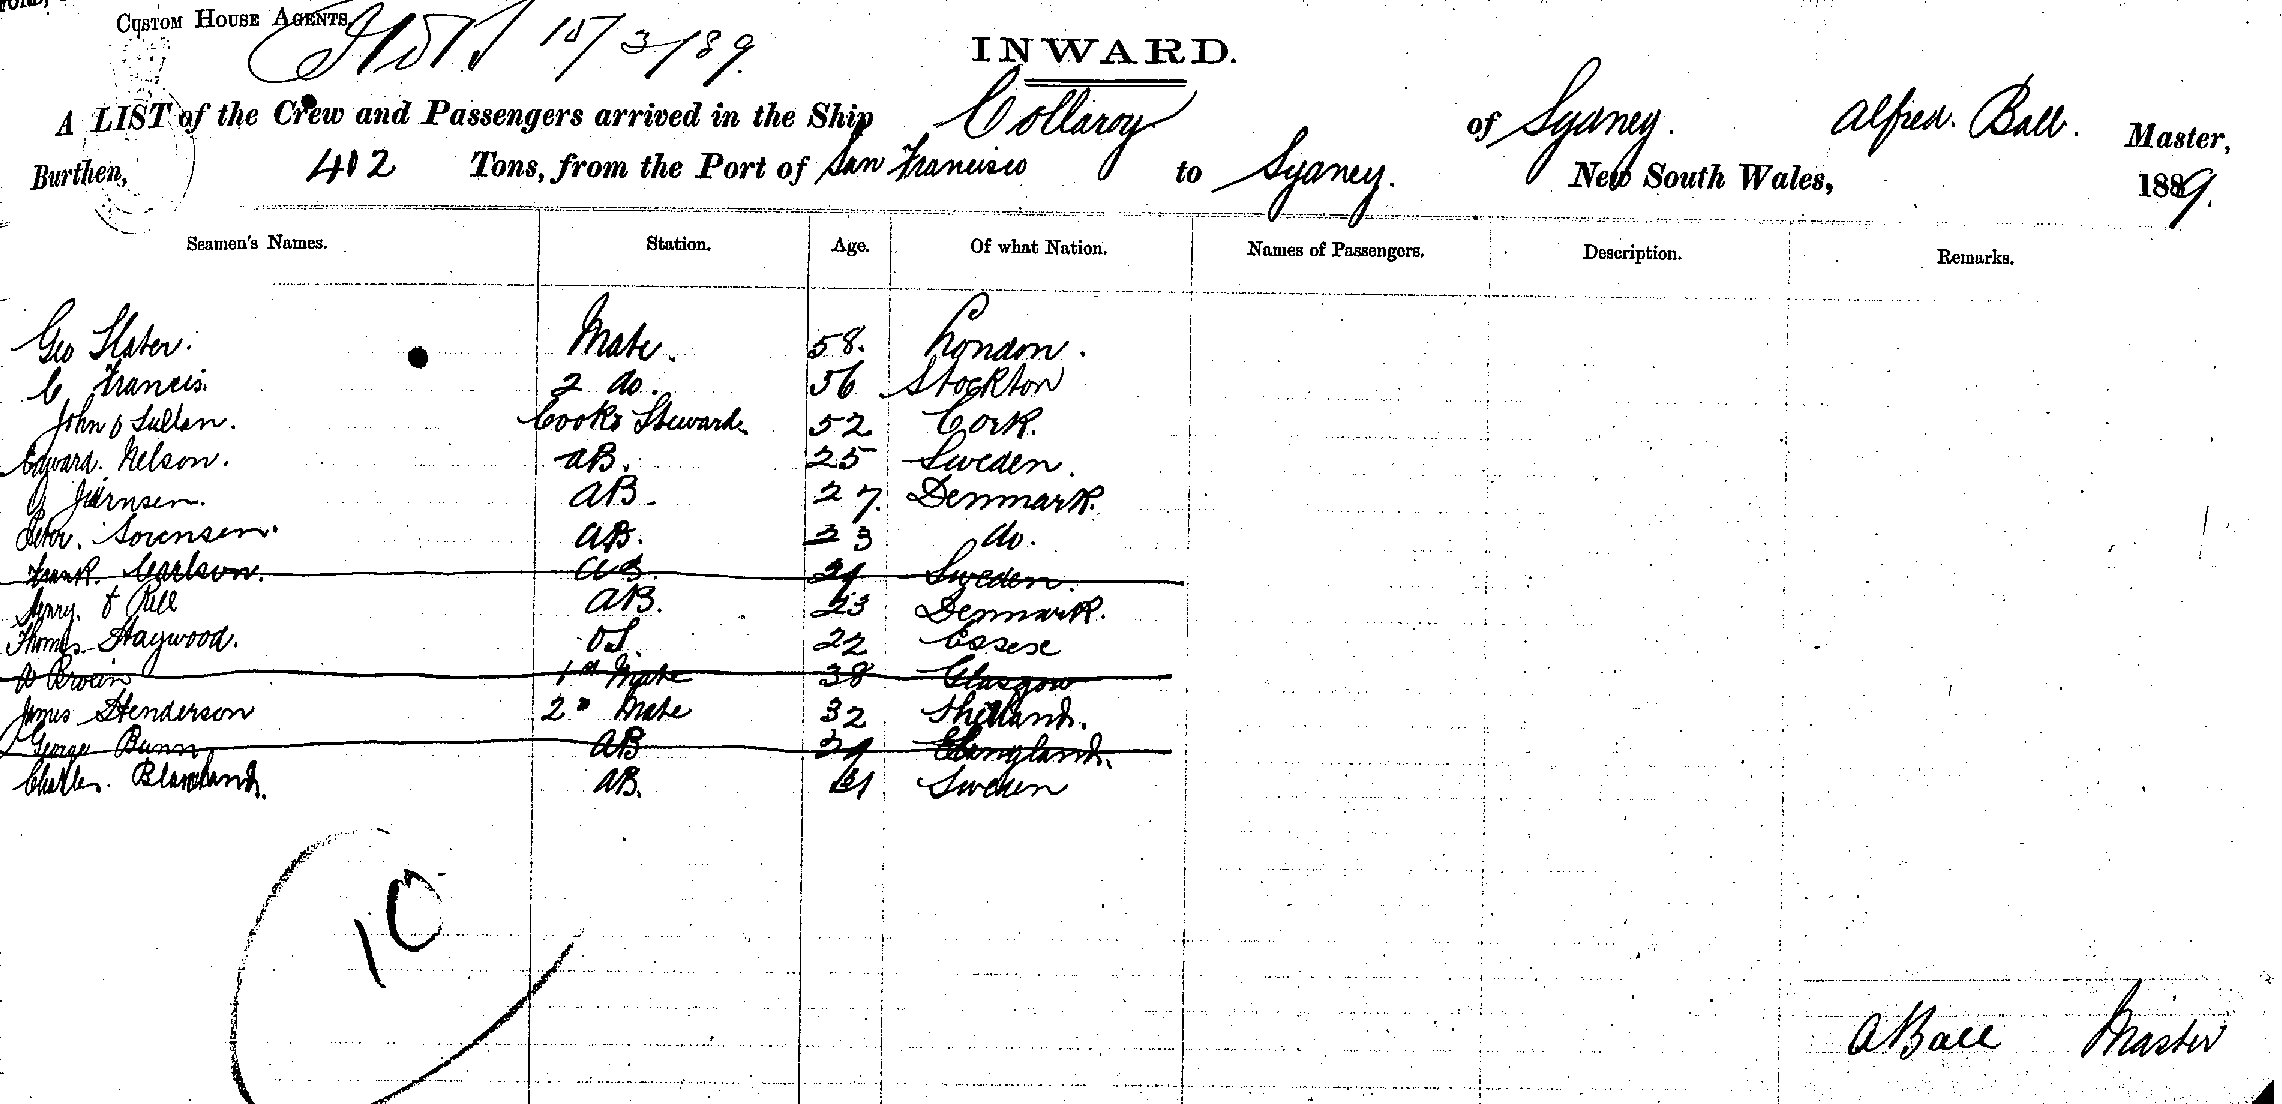 CUSTOM HOUSE AGENTS,
15/3/89.
INWARD.
A LIST of the Crew and Passengers arrived in the Ship Collaroy of Sydney. Alfred. Ball. Master,
Burthen, 402 Tons, from the Port of San Francisco to Sydney. New South Wales, 1889.
Seamen's Names. Station. Age. Of what Nation. Names of Passengers. Description. Remarks.
Geo Slater. Mate. 58. London.
C Francis. 2 do. 56 Stockton
John O Sullan. Cook & Steward. 52 Cork.
Edward. Nelson. AB. 25 Sweden.
Jörnsen. AB. 27. Denmark.
Peter. Sorensen. AB. 23 do.
Frank. Carlson. AB. 24 Sweden.
Henry. AB. 23 Denmark.
Thomas Haywood. OS. 22 Essex
1st Mate 38 Glasgow
James Henderson 2nd Mate 32 Shetland.
George Bunn AB England.
Charles. AB. Sweden
10
A Ball Master